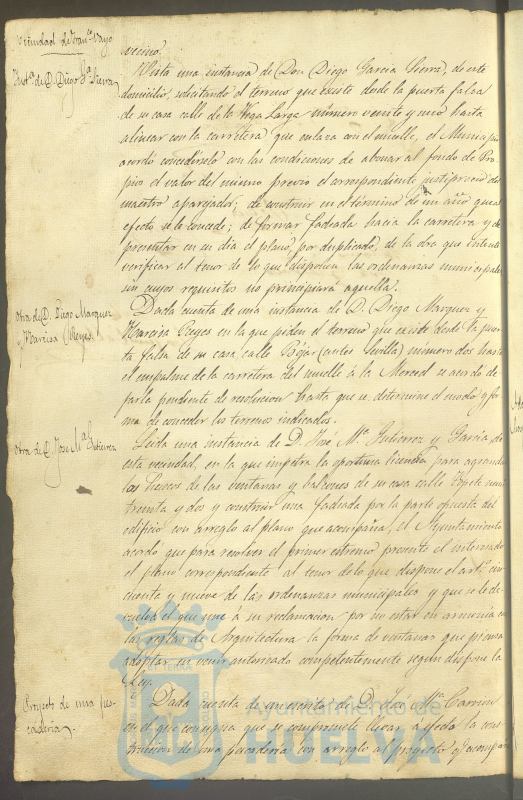 Vecindad de Fran.co Vayo
vecino.
Inst.a de D. Diego G.a Sierra
Vista una instancia de Don Diego Garcia Sierra, de este
domicilio, solicitando el terreno que existe desde la puerta falsa
de su casa calle de la Vega Larga número veinte y uno hasta
alinear con la carretera que enlaza con el muelle, el Municipio
acordó concedérselo con las condiciones de abonar al fondo de Pro-
pios el valor del mismo previo el correspondiente justiprecio del
maestro aparejador; de construir en el término de un año que al
efecto se le concede; de formar fachada hacia la carretera y de
presentar en su dia el plano, por duplicado, de la obra que intente
verificar al tenor de lo que disponen las ordenanzas municipales
sin cuyos requisitos no principiará aquella.
Otra de D. Diego Marquez
y Narcisa Reyes.
Dada cuenta de una instancia de D. Diego Marquez y
Narcisa Reyes en la que piden el terreno que existe desde la puer-
ta falsa de su casa calle Béjar (antes Sevilla) número dos hasta
el empalme de la carretera del muelle á la Merced se acordó de-
jarla pendiente de resolucion hasta que se determine el modo y for-
ma de conceder los terrenos indicados.
Otra de D. Jose M.a Gutierrez
Leida una instancia de D. José M.a Gutierrez y Garcia de
esta vecindad, en la que impetra la oportuna licencia para agrandar
los huecos de las ventanas y balcones de su casa calle
treinta y dos y construir una fachada por la parte opuesta del
edificio con arreglo al plano que acompaña, el Ayuntamiento
acordó que para resolver el primer extremo presente el interesado
el plano correspondiente al tenor de lo que dispone el art.o cin-
cuenta y nueve de las ordenanzas municipales y que se le de-
vuelva el que une á su reclamacion por no estar en armonia con
las reglas de Arquitectura la forma de ventanas que piensa
adoptar ni venir autorizado competentemente segun dispone la
Ley.
Proyecto de una pes-
caderia.
Dada cuenta de un escrito de D. José M.a Carrion
en el que consigna que se compromete llevar á efecto la cons-
truccion de una pescaderia con arreglo al proyecto q.e acompaña
Ayuntamiento de
HUELVA